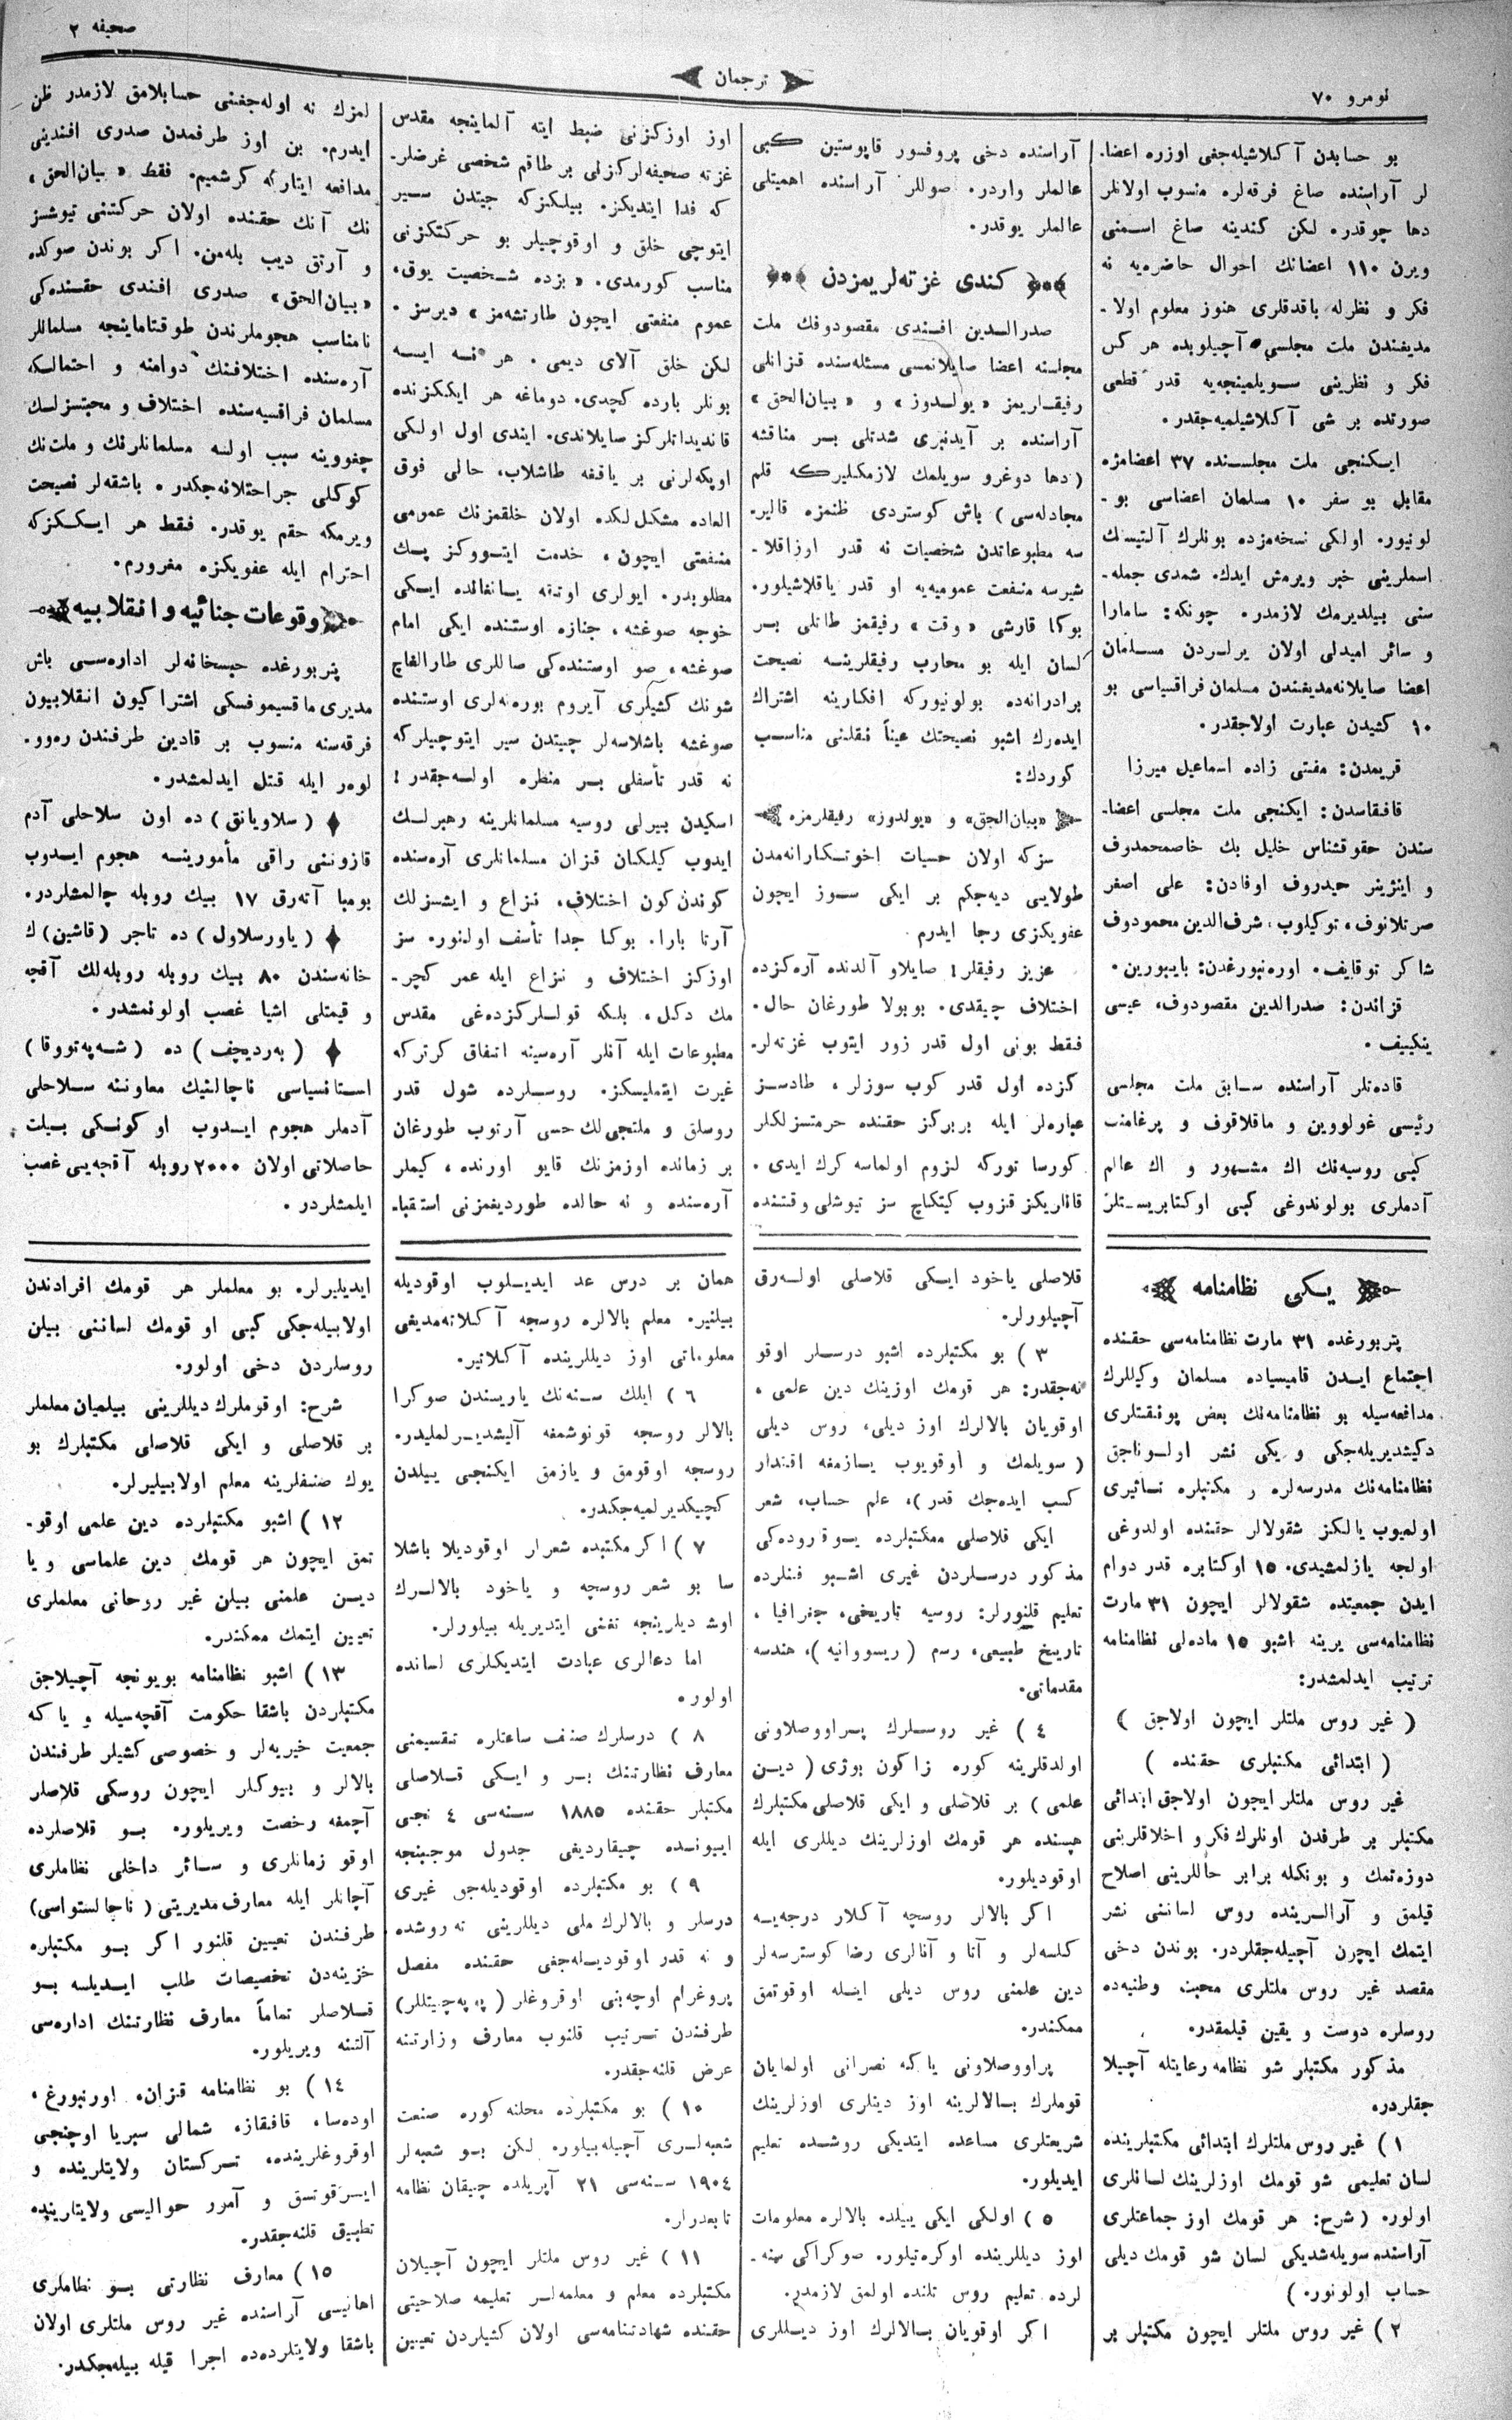 صحیفه ۲
ترجمان
نومرو ۷۰
بو حسابدن آکلاشیله‌جغی اوزره اعضا-
لر آراسنده صاغ فرقه‌لره منسوب اولانلر
دها چوقدر. لکن کندینه صاغ اسمنی
ویرن ۱۱۰ اعضانك احوال حاضره‌یه نه
فکر و نظرله باقدقلری هنوز معلوم اولا-
مدیغندن ملت مجلسی آچیلوبده هر کس
فکر و نظرینی سویلمینجه‌یه قدر قطعی
صورتده بر شی آکلاشیلمیه‌جقدر.
ایکنجی ملت مجلسنده ۳۷ اعضامزه
مقابل بو سفر ۱۰ مسلمان اعضاسی بو-
لونیور. اولکی نسخه‌مزده بونلرك آلتیسنك
اسملرینی خبر ویرمش ایدك. شمدی جمله-
سنی بیلدیرمك لازمدر. چونکه: سامارا
و سائر امیدلی اولان یرلردن مسلمان
اعضا صایلانه‌مدیغندن مسلمان فراقسیاسی بو
۱۰ کشیدن عبارت اولاجقدر.
قریمدن: مفتی زاده اسماعیل میرزا
قافقاسدن: ایکنجی ملت مجلسی اعضا-
سندن حقوقشناس خلیل بك خاصمحمدوف
و اینژینر حیدروف اوفادن: علی اصغر
صرتلانوف، توکیلوب، شرف‌الدین محمودوف
شاکر توقایف. اوره‌نبورغدن: بایبورین.
قزاندن: صدرالدین مقصودوف، عیسی
ینکییف.
قاده‌تلر آراسنده سابق ملت مجلسی
رئیسی غولووین و ماقلاقوف و پرغامنت
کبی روسیه‌نك اك مشهور و اك عالم
آدملری بولوندوغی کبی اوکتابریستلر
آراسنده دخی پروفسور قاپوستین کبی
عالملر واردر. صوللر آراسنده اهمیتلی
عالملر یوقدر.
کندی غزته‌لریمزدن
صدرالدین افندی مقصودوفك ملت
مجلسنه اعضا صایلانمسی مسئله‌سنده قزانلی
رفیقلریمز «یولدوز» و «بیان‌الحق»
آراسنده بر آیدنبری شدتلی بر مناقشه
(دها دوغرو سویلمك لازمکلیرکه قلم
مجادله‌سی) باش کوستردی ظنمزه قالیر-
سه مطبوعاتدن شخصیات نه قدر اوزاقلا-
شیرسه منفعت عمومیه‌یه او قدر یاقلاشیلور.
بوکا قارشی «وقت» رفیقمز طاتلی بر
لسان ایله بو محارب رفیقلرینه نصیحت
برادرانه‌ده بولونیورکه افکارینه اشتراك
ایده‌رك اشبو نصیحتك عیناً نقلنی مناسب
کوردك:
«بیان‌الحق» و «یولدوز» رفیقلرمزه
سزکه اولان حسیات اخوتکارانه‌مدن
طولایی دیه‌جکم بر ایکی سوز ایچون
عفویکزی رجا ایدرم.
عزیز رفیقلر! صایلاو آلدنده آره‌کزده
اختلاف چیقدی. بو بولا طورغان حال.
فقط بونی اول قدر زور ایتوب غزته‌لر-
کزده اول قدر کوب سوزلر، طادسز
عباره‌لر ایله بربرکز حقنده حرمتسزلکلر
کورسا تورکه لزوم اولماسه کرك ایدی.
قانلریکز قزوب کیتکاچ سز تیوشلی وقتنده
اوز اوزکزنی ضبط ایته آلماینجه مقدس
غزته صحیفه‌لرکزنی بر طاقم شخصی غرضلر-
که فدا ایتدیکز. بیلکزکه جیتدن سیر
ایتوچی خلق و اوقوچیلر بو حرکتکزنی
مناسب کورمدی. «بزده شخصیت یوق،
عموم منفعتی ایچون طارتشه‌مز» دیرسز.
لکن خلق آلای دیمی. هر نه ایسه
بونلر بارده کچدی. دوماغه هر ایککزنده
قاندیداتلرکز صایلاندی. ایندی اول اولکی
اوپکه‌لرنی بر یاقغه طاشلاب، حالی فوق
العاده مشکل‌لکده اولان خلقمزنك عمومی
منفعتی ایچون، خدمت ایتووکز پك
مطلوبدر. ایولری اوتقه یانغانده ایسکی
خوجه صوغشه، جنازه اوستنده ایکی امام
صوغشه، صو اوستنده‌کی صاللری طارالغاچ
شونك کشیلری آیروم بوره‌نه‌لری اوستنده
صوغشه باشلاسه‌لر چیتدن سیر ایتوچیلرکه
نه قدر تأسفلی بر منظره اوله‌جقدر!
اسکیدن بیرلی روسیه مسلمانلرینه رهبرلك
ایدوب کیلکان قزان مسلمانلری آره‌سنده
کوندن کون اختلاف، نزاع و ایشسزلك
آرتا بارا. بوکا جدا تأسف اولنور. سز
اوزکز اختلاف و نزاع ایله عمر کچر-
مك دکل، بلکه قوللرکزده‌غی مقدس
مطبوعات ایله آنلر آره‌سینه اتفاق کرترکه
غیرت ایتملیسکز. روسلرده شول قدر
روسلق و ملتجی‌لك حسی آرتوب طورغان
بر زمانده اوزمزنك قایو اورنده، کیملر
آره‌سنده و نه حالده طوردیغمزنی استقبا-
لمزك نه اوله‌جغنی حسابلامق لازمدر ظن
ایدرم. بن اوز طرفمدن صدری افندینی
مدافعه ایتارگه کرشمیم. فقط «بیان‌الحق»
نك آنك حقنده اولان حرکتنی تیوشسز
و آرتق دیب بله‌من. اکر بوندن صوکده
«بیان‌الحق» صدری افندی حقنده‌کی
نامناسب هجوملرندن طوقتاماینجه مسلمانلر
آره‌سنده اختلافنك دوامنه و احتمالکه
مسلمان فراقسیه‌سنده اختلاف و محبتسزلك
چغووینه سبب اولسه مسلمانلرنك و ملت‌نك
کوکلی جراحتلانه‌جکدر. باشقه‌لر نصیحت
ویرمکه حقم یوقدر. فقط هر ایککزکه
احترام ایله عفویکزه مغرورم.
وقوعات جنائیه و انقلابیه
پتربورغده حبسخانه‌لر اداره‌سی باش
مدیری ماقسیموفسکی اشتراکیون انقلابیون
فرقه‌سنه منسوب بر قادین طرفندن ره‌وو-
لوه‌ر ایله قتل ایدلمشدر.
(سلاویانق) ده اون سلاحلی آدم
قازوننی راقی مأمورینه هجوم ایدوب
بومبا آته‌رق ۱۷ بیك روبله چالمشلردر.
(یاورسلاول) ده تاجر (قاشین) ك
خانه‌سندن ۸۰ بیك روبله روبله‌لك آقچه
و قیمتلی اشیا غصب اولونمشدر.
(به‌ردیچف) ده (شه‌په‌تووقا)
استانسیاسی ناچالنیك معاوننه سلاحلی
آدملر هجوم ایدوب او کونکی بیلت
حاصلاتی اولان ۲۰۰۰ روبله آقچه‌یی غصب
ایلمشلردر.
یکی نظامنامه
پتربورغده ۳۱ مارت نظامنامه‌سی حقنده
اجتماع ایدن قامیسیاده مسلمان وکیللرك
مدافعه‌سیله بو نظامنامه‌نك بعض پونقتلری
دکیشدیریله‌جکی و یکی نشر اولوناجق
نظامنامه‌نك مدرسه‌لره و مکتبلره تأثیری
اولمیوب یالکز شقولالر حقنده اولدوغی
اولجه یازلمشیدی. ۱۵ اوکتابره قدر دوام
ایدن جمعیتده شقولالر ایچون ۳۱ مارت
نظامنامه‌سی یرینه اشبو ۱۵ ماده‌لی نظامنامه
ترتیب ایدلمشدر:
(غیر روس ملتلر ایچون اولاجق)
(ابتدائی مکتبلری حقنده)
غیر روس ملتلر ایچون اولاجق ابتدائی
مکتبلر بر طرفدن اونلرك فکر و اخلاقلرینی
دوزه‌تمك و بونکله برابر حاللرینی اصلاح
قیلمق و آرالرینده روس لساننی نشر
ایتمك ایچون آچیله‌جقلردر. بوندن دخی
مقصد غیر روس ملتلری محبت وطنیه‌ده
روسلره دوست و یقین قیلمقدر.
مذکور مکتبلر شو نظامه رعایتله آچیلا
جقلردر.
۱) غیر روس ملتلرك ابتدائی مکتبلرینده
لسان تعلیمی شو قومك اوزلرینك لسانلری
اولور. (شرح: هر قومك اوز جماعتلری
آراسنده سویله‌شدیکی لسان شو قومك دیلی
حساب اولونور.)
۲) غیر روس ملتلر ایچون مکتبلر بر
قلاصلی یاخود ایکی قلاصلی اوله‌رق
آچیلورلر.
۳) بو مکتبلرده اشبو درسلر اوقو
نه‌جقدر: هر قومك اوزینك دین علمی،
اوقویان بالالرك اوز دیلی، روس دیلی
(سویلمك و اوقویوب یازمغه اقتدار
کسب ایده‌جك قدر)، علم حساب، شعر
ایکی قلاصلی مکتبلرده یوقروده‌کی
مذکور درسلردن غیری اشبو فنلرده
تعلیم قلنورلر: روسیه تاریخی، جغرافیا،
تاریخ طبیعی، رسم (ریسووانیه)، هندسه
مقدماتی.
٤) غیر روسلرك پراووصلاونی
اولدقلرینه کوره زاکون بوژی (دین
علمی) بر قلاصلی و ایکی قلاصلی مکتبلرك
هپسنده هر قومك اوزلرینك دیللری ایله
اوقودیلور.
اکر بالالر روسچه آکلار درجه‌یه
کلسه‌لر و آتا و آنالری رضا کوسترسه‌لر
دین علمنی روس دیلی ایله اوقوتمق
ممکندر.
پراووصلاونی یاکه نصرانی اولمایان
قوملرك بالالرینه اوز دینلری اوزلرینك
شریعتلری مساعده ایتدیکی روشده تعلیم
ایدیلور.
۵) اولکی ایکی ییلده بالالره معلومات
اوز دیللرینده اوکره‌تیلور. صوکراکی سنه-
لرده تعلیم روس تلنده اولمق لازمدر.
اکر اوقویان بالالرك اوز دیللری
همان بر درس عد ایدیلوب اوقودیله
بیلنیر. معلم بالالره روسجه آکلاته‌مدیغی
معلوماتی اوز دیللرینده آکلاتیر.
۶) ایلك سنه‌نك یاریسندن صوکرا
بالالر روسجه قونوشمغه آلیشدیرلملیدر.
روسجه اوقومق و یازمق ایکنجی ییلدن
کچیکدیرلمیه‌جکدر.
۷) اکر مکتبده شعرلر اوقودیلا باشلا
سا بو شعر روسچه و یاخود بالالرك
اوش دیلرینجه تغنی ایتدیریله بیلورلر.
اما دعالری عبادت ایتدیکلری لسانده
اولور.
۸) درسلرك صنف ساعتلره تقسیمنی
معارف نظارتنك بر و ایکی قلاصلی
مکتبلر حقنده ۱۸۸۵ سنه‌سی ٤ نجی
اییونده چیقاردیغی جدول موجبنجه
۹) بو مکتبلرده اوقودیله‌جق غیری
درسلر و بالالرك ملی دیللرینی نه روشده
و نه قدر اوقودیله‌جغی حقنده مفصل
پروغرام اوچه‌بنی اوقروغلر (په‌په‌چیتللر)
طرفندن ترتیب قلنوب معارف وزارتنه
عرض قلنه‌جقدر.
۱۰) بو مکتبلرده محلنه کوره صنعت
شعبه‌لری آچیله‌بیلور. لکن بو شعبه‌لر
۱۹۰٤ سنه‌سی ۲۱ آپریلده چیقان نظامه
تابعدرلر.
۱۱) غیر روس ملتلر ایچون آچیلان
مکتبلرده معلم و معلمه‌لر تعلیمه صلاحیتی
حقنده شهادتنامه‌سی اولان کشیلردن تعیین
ایدیلیرلر. بو معلملر هر قومك افرادندن
اولابیله‌جکی کبی او قومك لساننی بیلن
روسلردن دخی اولور.
شرح: اوقوملرك دیللرینی بیلمیان معلملر
بر قلاصلی و ایکی قلاصلی مکتبلرك بو
یوك صنفلرینه معلم اولابیلیرلر.
۱۲) اشبو مکتبلرده دین علمی اوقو-
تمق ایچون هر قومك دین علماسی و یا
دین علمنی بیلن غیر روحانی معلملری
تعیین ایتمك ممکندر.
۱۳) اشبو نظامنامه بویونجه آچیلاجق
مکتبلردن باشقا حکومت آقچه‌سیله و یاکه
جمعیت خیریه‌لر و خصوصی کشیلر طرفندن
بالالر و بیوکلر ایچون روسکی قلاصلر
آچمغه رخصت ویریلور. بو قلاصلرده
اوقو زمانلری و سائر داخلی نظاملری
آچانلر ایله معارف مدیریتی (ناچالستواسی)
طرفندن تعیین قلنور اکر بو مکتبلره
خزینه‌دن تخصیصات طلب ایدیلسه بو
قلاصلر تماماً معارف نظارتنك اداره‌سی
آلتنه ویریلور.
۱٤) بو نظامنامه قزان، اورنبورغ،
اوده‌سا، قافقاز، شمالی سبریا اوچنجی
اوقروغلرینده، ترکستان ولایتلرینده و
ایرقوتسق و آمور حوالیسی ولایتلرینده
تطبیق قلنه‌جقدر.
۱۵) معارف نظارتی بو نظاملری
اهالیسی آراسنده غیر روس ملتلری اولان
باشقا ولایتلرده‌ده اجرا قیله بیله‌جکدر.